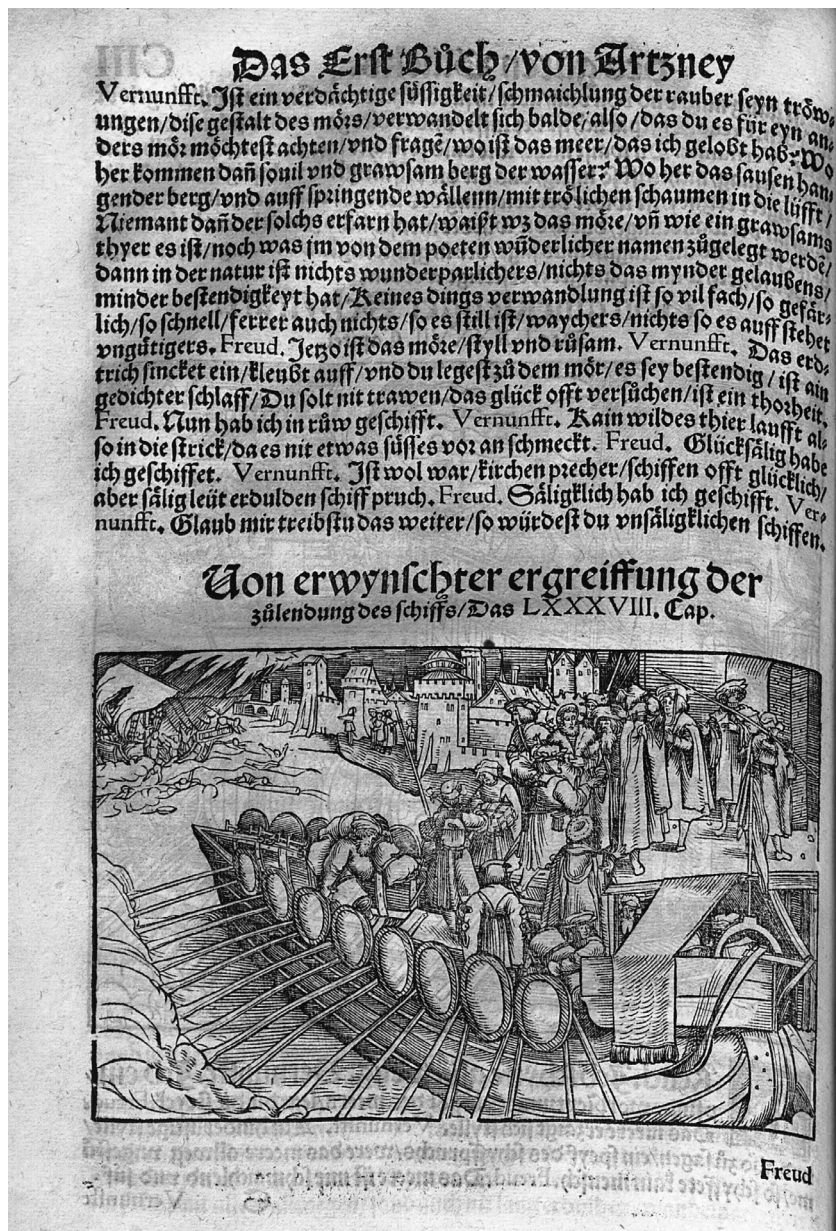 Das Erst Bůch/von Artzney
Vernunfft. Jst ein verdächtige süssigkeit/schmaichlung der rauber seyn tröw⸗
ungen/dise gestalt des mörs/verwandelt sich balde/also/das du es für eyn an⸗
ders mör möchtest achten/vnd fragē/wo ist das meer/das ich gelobt hab? Wo
her kommen dañ souil vnd grawsam berg der wasser? Wo her das sausen han⸗
gender berg/vnd auff springende wällenn/mit trölichen schaumen in die lüfft/
Niemant dañ der solchs erfarn hat/waißt wz das möre/vñ wie ein grawsams
thyer es ist/noch was jm von dem poeten wūderlicher namen zůgelegt werdē/
dann in der natur ist nichts wunderparlichers/nichts das mynder gelaubens/
minder bestendigkeyt hat/Keines dings verwandlung ist so vil fach/so gefär⸗
lich/so schnell/ferrer auch nichts/so es still ist/waychers/nichts so es auff stehet
vngütigers. Freud. Jetzo ist das möre/styll vnd růsam. Vernunfft. Das erd⸗
trich sincket ein/kleubt auff/vnd du legest zů dem mör/es sey bestendig/ist ain
gedichter schlaff/Du solt nit trawen/das glück offt versůchen/ist ein thorheit.
Freud. Nun hab ich in růw geschifft. Vernunfft. Kain wildes thier laufft al⸗
so in die strick/da es nit etwas süsses vor an schmeckt. Freud. Glücksälig habe
ich geschiffet. Vernunfft. Jst wol war/kirchen precher/schiffen offt glücklich/
aber sälig leüt erdulden schiff pruch. Freud. Säligklich hab ich geschifft. Ver⸗
nunfft. Glaub mir treibstu das weiter/so würdest du vnsäligklichen schiffen.
Von erwynschter ergreiffung der
zůlendung des schiffs/Das LXXXVIII. Cap.
Freud